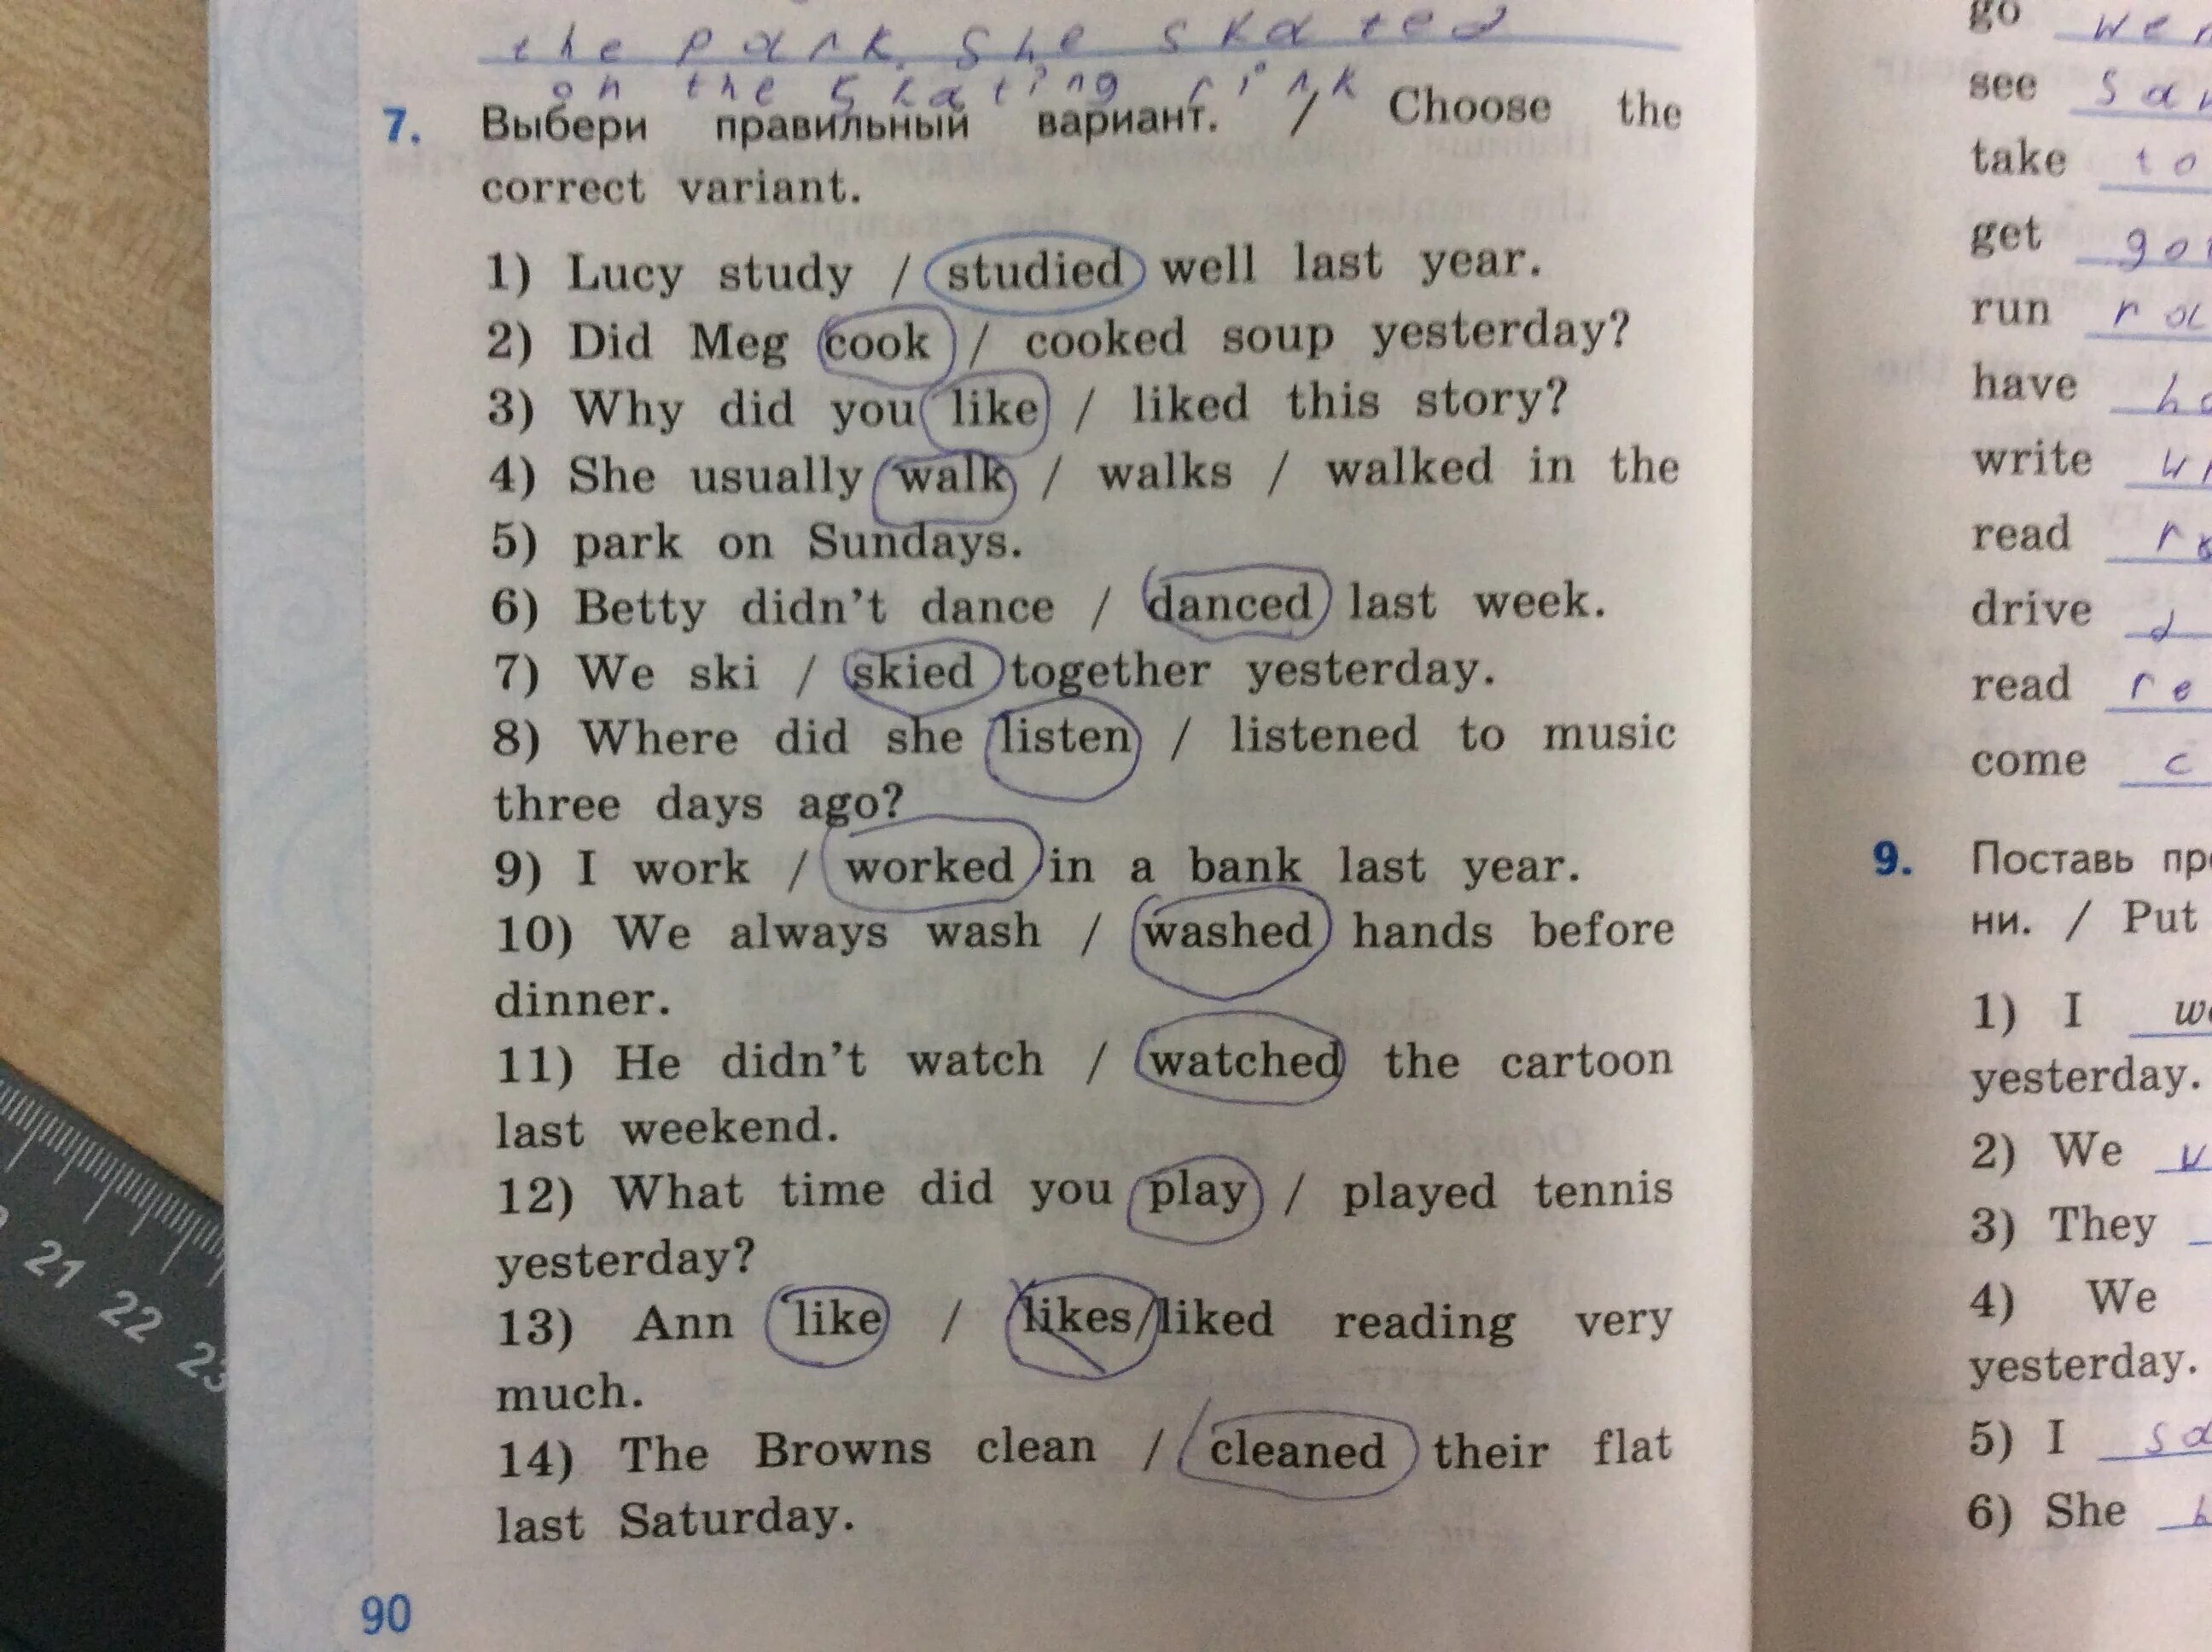 the park. She skated
on the skating rink
7. Выбери правильный вариант. / Choose the
correct variant.
1) Lucy study / studied well last year.
2) Did Meg cook / cooked soup yesterday?
3) Why did you like / liked this story?
4) She usually walk / walks / walked in the
5) park on Sundays.
6) Betty didn't dance / danced last week.
7) We ski / skied together yesterday.
8) Where did she listen / listened to music
three days ago?
9) I work / worked in a bank last year.
10) We always wash / washed hands before
dinner.
11) He didn't watch / watched the cartoon
last weekend.
12) What time did you play / played tennis
yesterday?
13) Ann like / likes/liked reading very
much.
14) The Browns clean / cleaned their flat
last Saturday.
90
go
see
take
get
run
have
write
read
drive
read
come
9. Поставь
ни. / Put
1) I
yesterday.
2) We
3) They
4) We
yesterday.
5) I
6) She
21 22 23